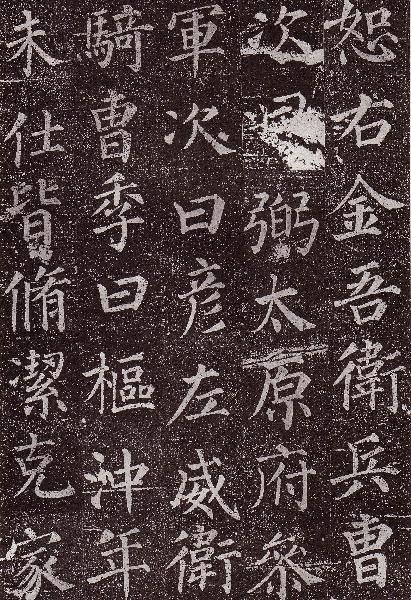 恕右金吾衛兵曺
次弼太原府參
軍次曰彦左威衛
騎曺季曰樞沖年
未仕皆脩潔克家